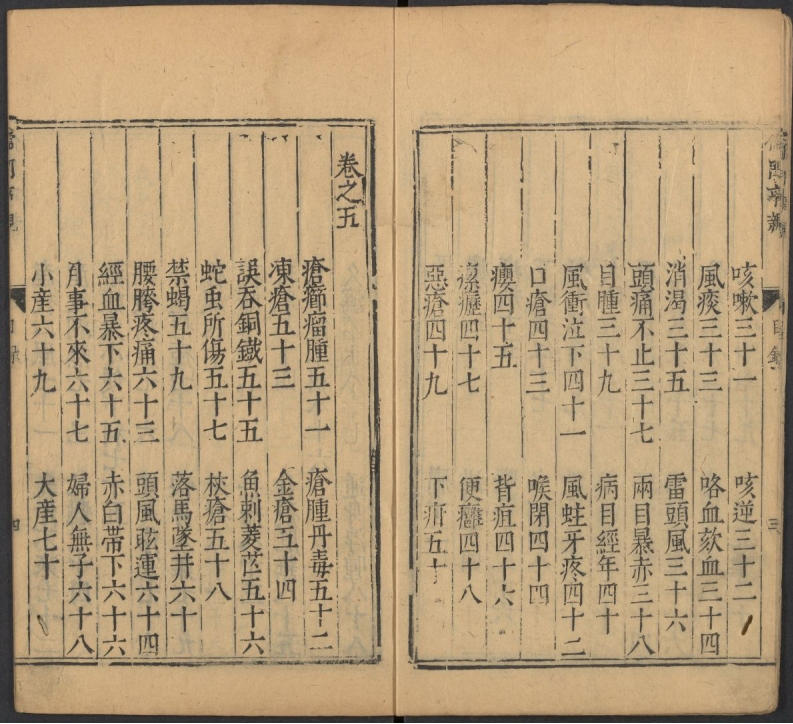 儒門事親
目錄
三
咳嗽三十一 咳逆三十二
風痰三十三 咯血欬血三十四
消渴三十五 雷頭風三十六
頭痛不止三十七 兩目暴赤三十八
目腫三十九 病目經年四十
風衝泣下四十一 風蛀牙疼四十二
口瘡四十三 喉閉四十四
癭四十五 背疽四十六
瘰癧四十七 便癰四十八
惡瘡四十九 下疳五十
卷之五
瘡癤瘤腫五十一 瘡腫丹毒五十二
凍瘡五十三 金瘡五十四
誤吞銅鐵五十五 魚刺麥芒五十六
蛇虫所傷五十七 杖瘡五十八
禁蝎五十九 落馬墜井六十
腰胯疼痛六十三 頭風眩運六十四
經血暴下六十五 赤白帶下六十六
月事不來六十七 婦人無子六十八
小産六十九 大産七十
目錄
四